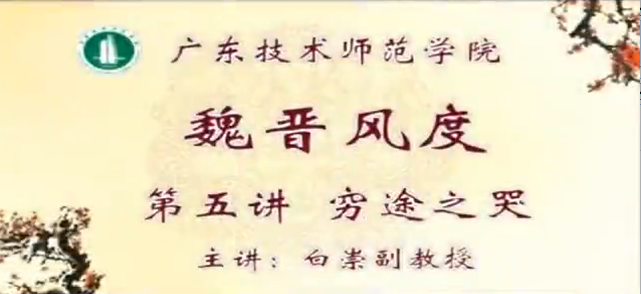 广东技术师范学院
魏晋风度
第五讲 穷途之哭
主讲：白崇副教授